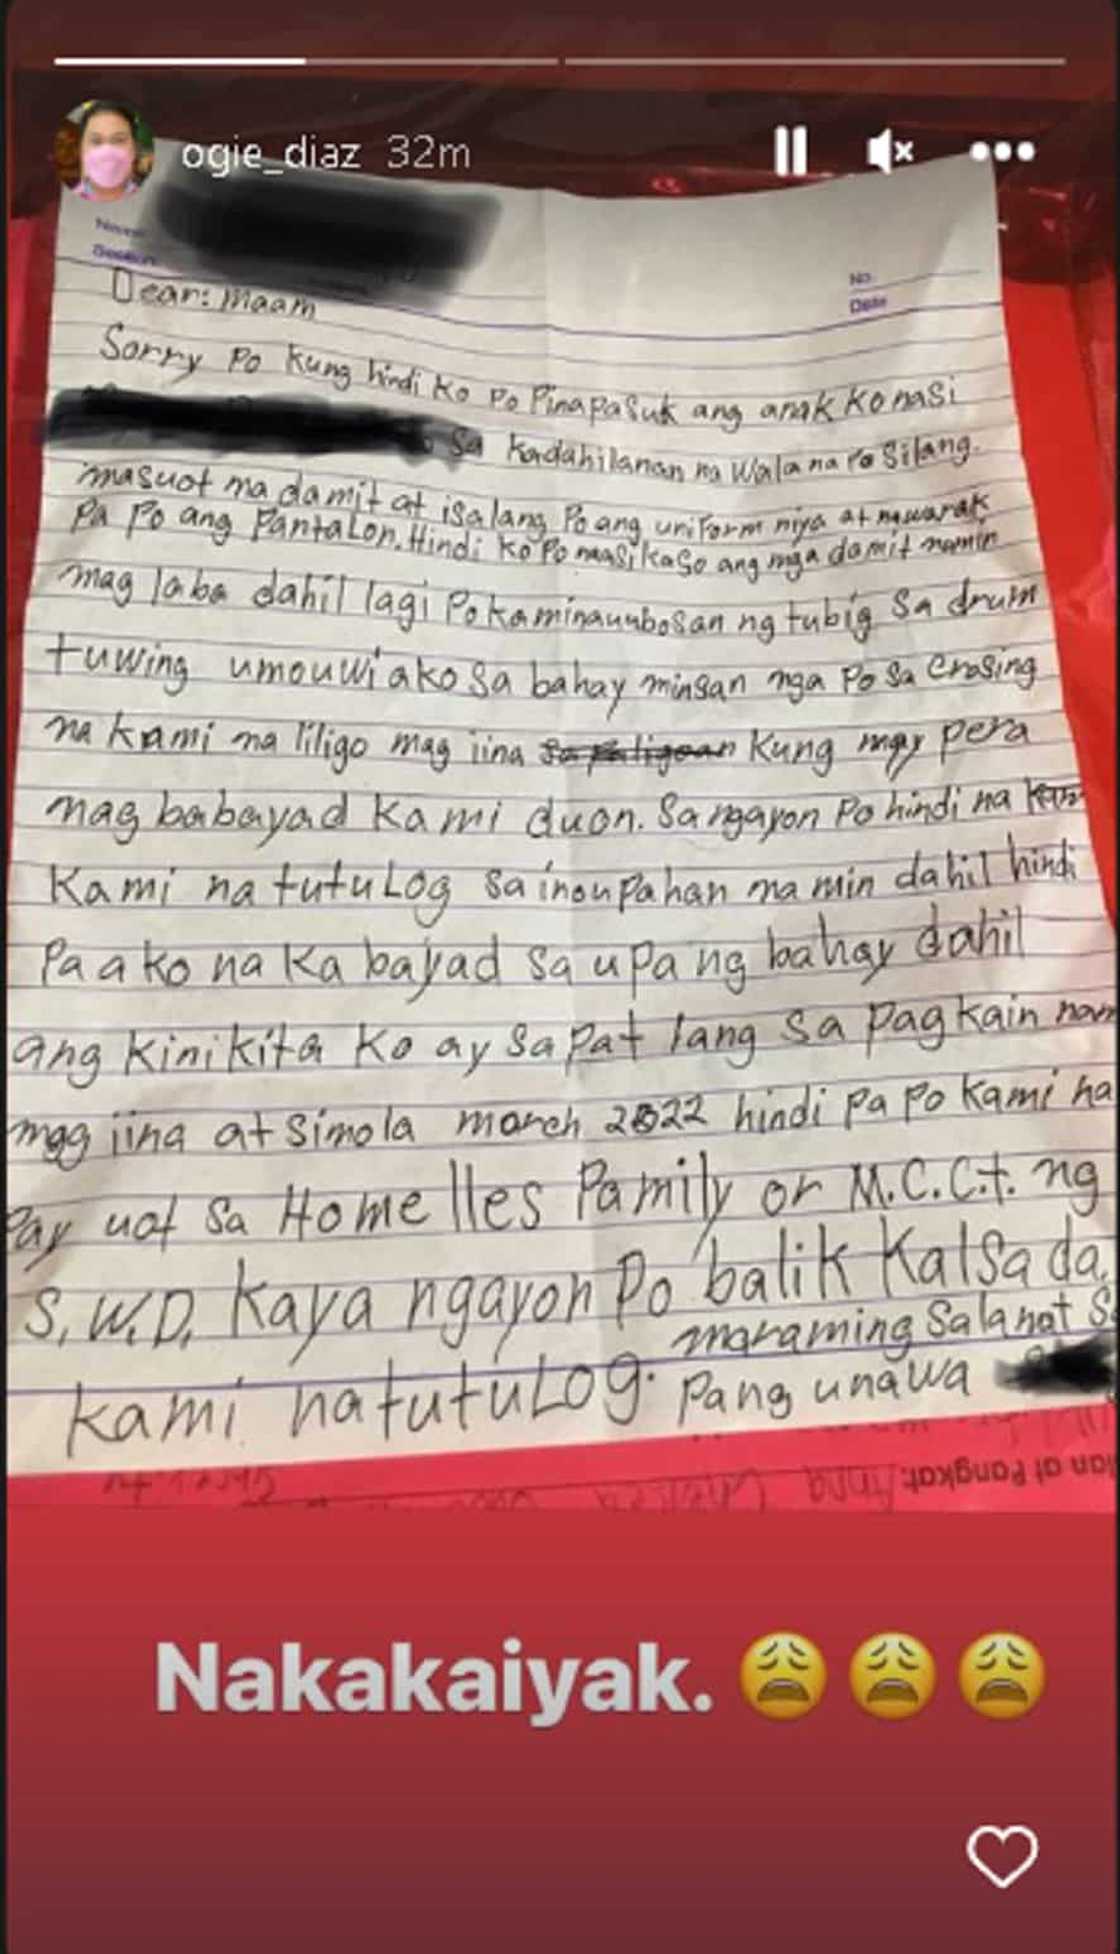 ogie_diaz 32m
Name:
Section:
No.
Date
Dear: maam
Sorry Po kung hindi ko Po Pinapasuk ang anak ko nasi
sa kadahilanan na wala na Po Silang.
masuot na damit at isa lang Po ang uniform niya at nawarak
Pa Po ang Pantalon. Hindi ko Po maasikaso ang mga damit namin
mag laba dahil lagi Po kami nauubosan ng tubig sa drum
tuwing umouwi ako sa bahay minsan nga Po sa Crosing
na kami na liligo mag iina sa paligoan kung may pera
mag babayad kami duon. Sa ngayon Po hindi na kam
kami na tutulog sa inoupahan na min dahil hindi
Pa ako na ka bayad sa upa ng bahay dahil
ang kinikita ko ay sapat lang sa pag kain nam
mag iina at simola march 2022 hindi pa po kami na
Pay uot sa Home lles Pamily or M.C.C.t. ng
S.W.D. kaya ngayon Po balik kalsada.
kami natutulog. maraming Salamat S
Pang unawa
ian at Pangkat:
Nakakaiyak. 😩😩😩